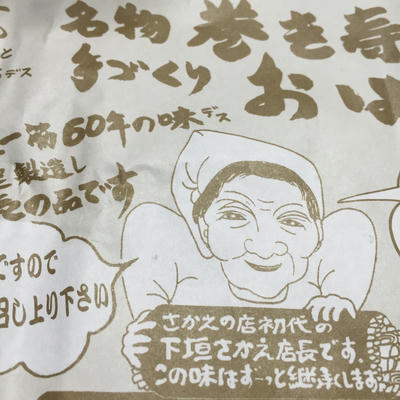 名物 巻き寿
手づくり おは
と
デス
一満60年の味デス
製造し
の品です
ですので
召し上り下さい
さかえの店初代の
下垣さかえ店長です。
この味はずーっと継承します。